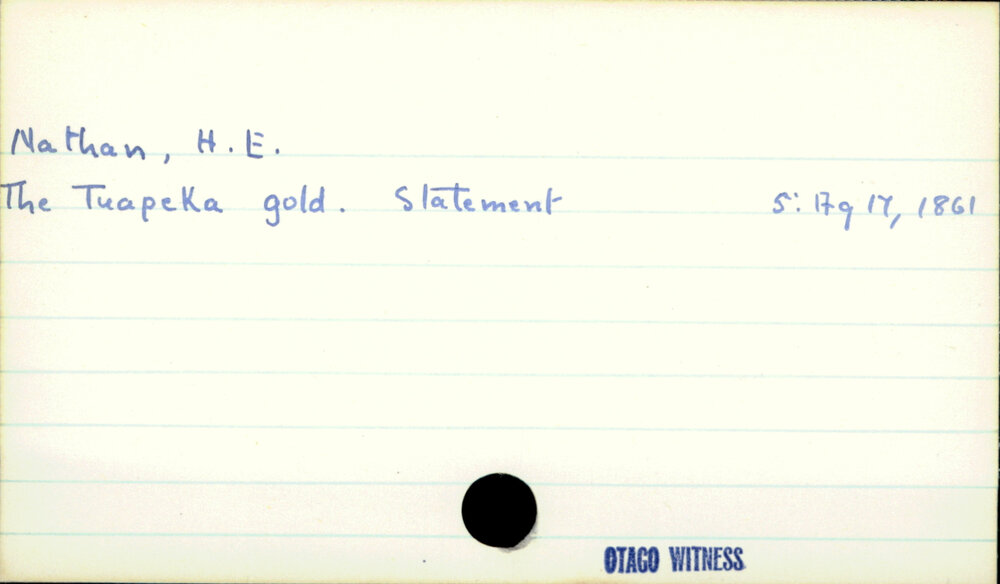 Nathan, H. E.
The Tuapeka gold. Statement 5: Ag 17, 1861
OTAGO WITNESS